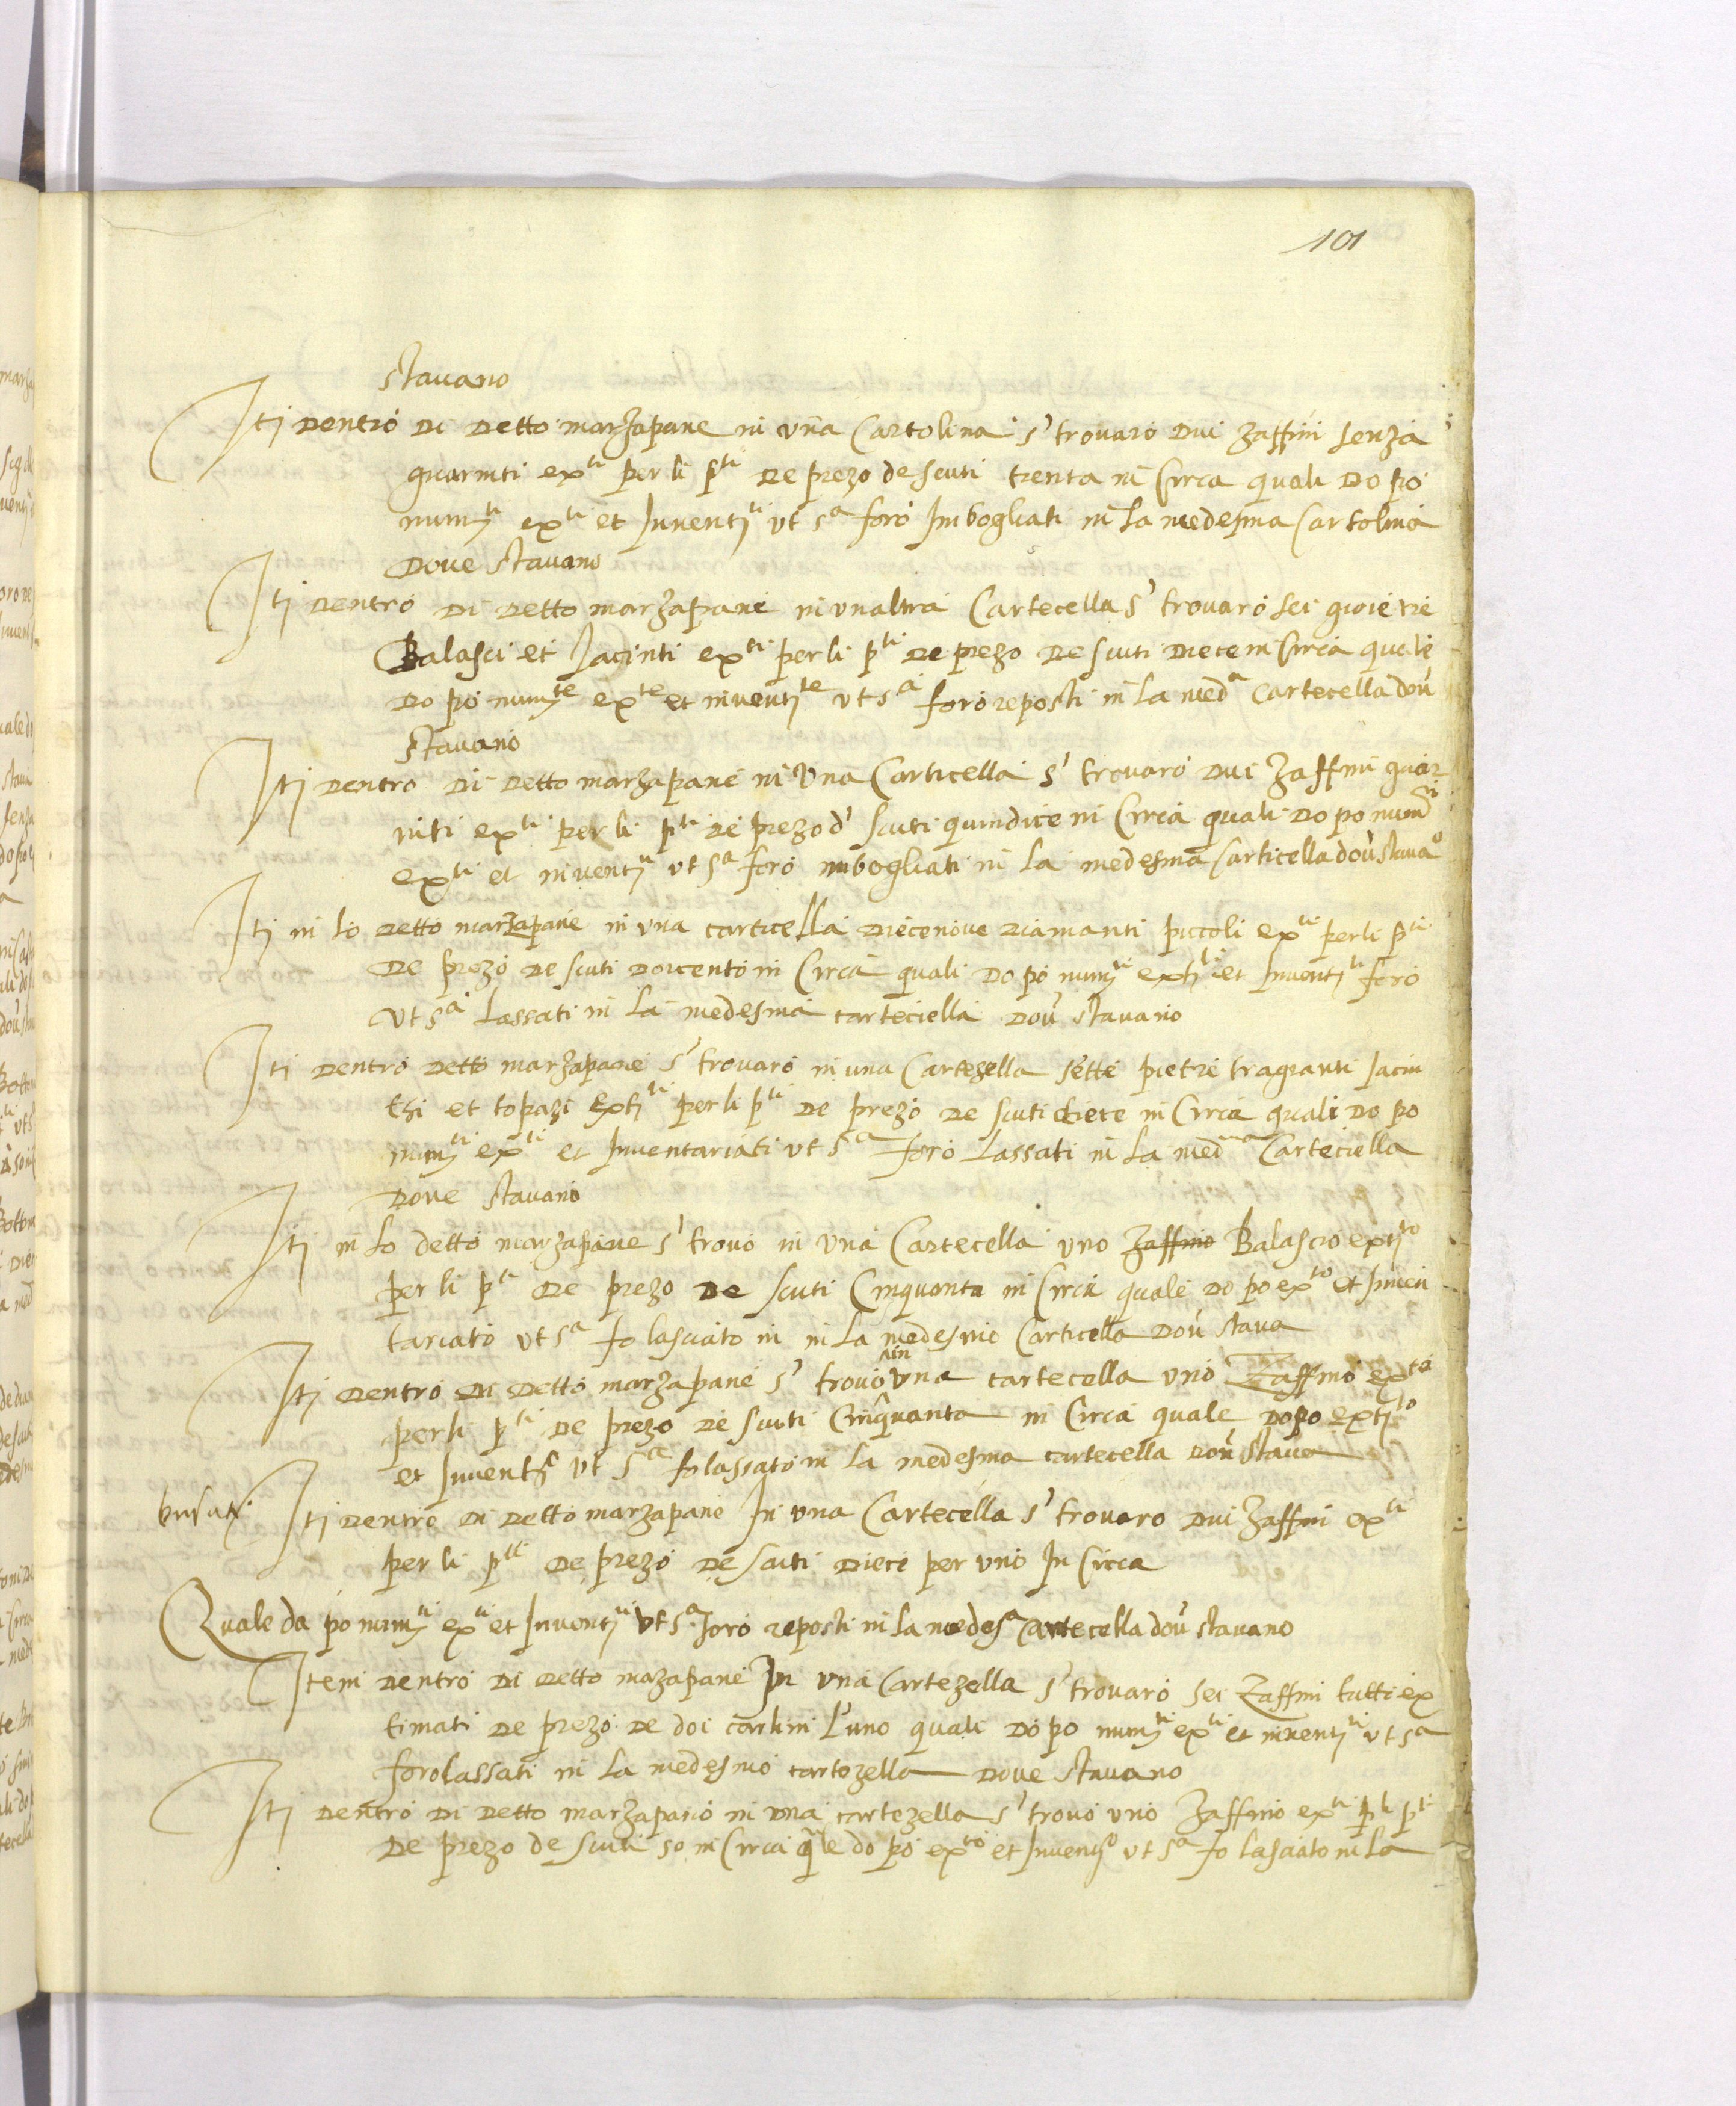 101
stavano
Itj dentro di detto marzapane in una Cartolina s' trovaro dui zaffini senza
guarniti ex^ti per li p^ti de prezo de scuti trenta in Circa quali do po
numj^ti ex^ti et Inventj^ti ut s^a foro Imbogliati in la medesma Cartolina
dove stavano
Itj dentro di detto marzapane in unaltra Cartecella s' trovaro sei gioie tre
Balasci et Jacinti ex^ti per li p^ti de prezo de scuti diece in Circa quale
do po numj^te ex^te et inventj^te ut s^a foro reposti in la med^a cartecella dov'
stavano
Itj dentro di detto marzapane in una Carticella s' trovaro dui zaffini guar
niti ex^ti per li p^ti de prezo d' scuti quindice in Circa quali do po num^ti
ex^ti et inventj^ti ut s^a foro imbogliati in la medesma Carticella dov' stava^o
Itj in lo detto marzapane in una carticella diecenove diamanti piccoli ex^ti per li p^ti
de prezo de scuti doicento in Circa quali do po numj^ti extj^ti et Inventj^ti foro
ut s^a lassati in la medesma carteciella dov' stavano
Itj dentro detto marzapane s' trovaro in una Cartezella sette pietre Jacin
thi et topazi extj^ti per li p^ti de prezo de scuti diece in Circa quali do po
numj^ti ex^ti et Inventariati ut s^a foro lassati in la med^ma Carteciella
dove stavano
Itj in lo detto marzapane s' trovo in una Cartecella uno zaffino Balascio extj^to
per li p^ti de prezo de scuti Cinquanta in Circa quale do po ex^to et Inven
tariato ut s^a fo lasciato in in la medesmo Carticella dov' stava
Itj dentro di detto marzapane s' trovo in una cartecella uno Zaffino ex^to
per li p^ti de prezo de scuti Cinquanta in Circa quale dopo extj^to
et Inventj^o ut s^a fo lassato in la medesma cartecella dov' stava
Itj dentro di detto marzapane In una Cartecella s' trovaro dui Zaffini ex^ti
per li p^ti de prezo de scuti dieci per uno In Circa
Quale da po numj^ti ex^ti et Inventj^ti ut s^a foro reposti in la medes^a Cartecella dov' stavano
Item dentro di detto mazapane In una Cartezella s' trovaro sei Zaffini tutti ex
timati de prezo de doi carlini l'uno quali do po numj^ti ex^ti et inventj^ti ut s^a
foro lassati in la medesmo cartozella dove stavano
Itj dentro di detto marzapano in una cartezella s' trovo uno Zaffino ex^ti p li p^ti
de prezo de scuti 50 in Circa q^le do po ex^to et Inventj^o ut s^a fo lasciato in la